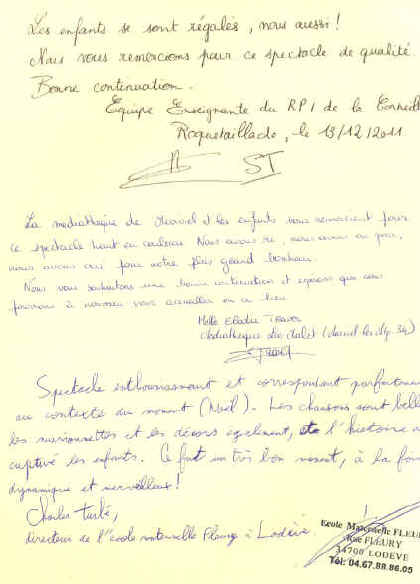 Les enfants se sont régalés, nous aussi!
Nous vous remercions pour ce spectacle de qualité.
Bonne continuation.
Equipe Enseignante du RPI de la Corneill
Roquetaillade, le 13/12/2011
ST
La mediathèque de et les enfants vous remercient pour
ce spectacle haut en couleur. Nous avons ri, nous avons eu peur,
nous avons pour notre plus grand bonheur.
Nous vous souhaitons une bonne continuation et espérons que nous
pourrons à nouveau vous accueillir en ce lieu
Melle Elodie
Médiathèque 34)
Spectacle enthousiasmant et correspondant parfaitement
au contexte du moment (Noël). Les chansons sont bell
les marionnettes et les décors également, et l'histoire a
captivé les enfants. Ce fut un très bon moment, à la foi
dynamique et merveilleux!
Charles Turlé,
directeur de l'école maternelle Fleury à Lodève.
Ecole Maternelle FLEU
Rue FLEURY
34700 LODEVE
Tél: 04.67.88.86.05